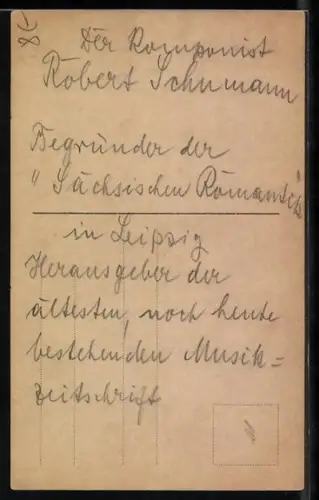 Der Komponist
Robert Schumann
Begründer der
"Sächsischen Romantik"
in Leipzig
Herausgeber der
ältesten, noch heute
bestehenden Musik=
Zeitschrift